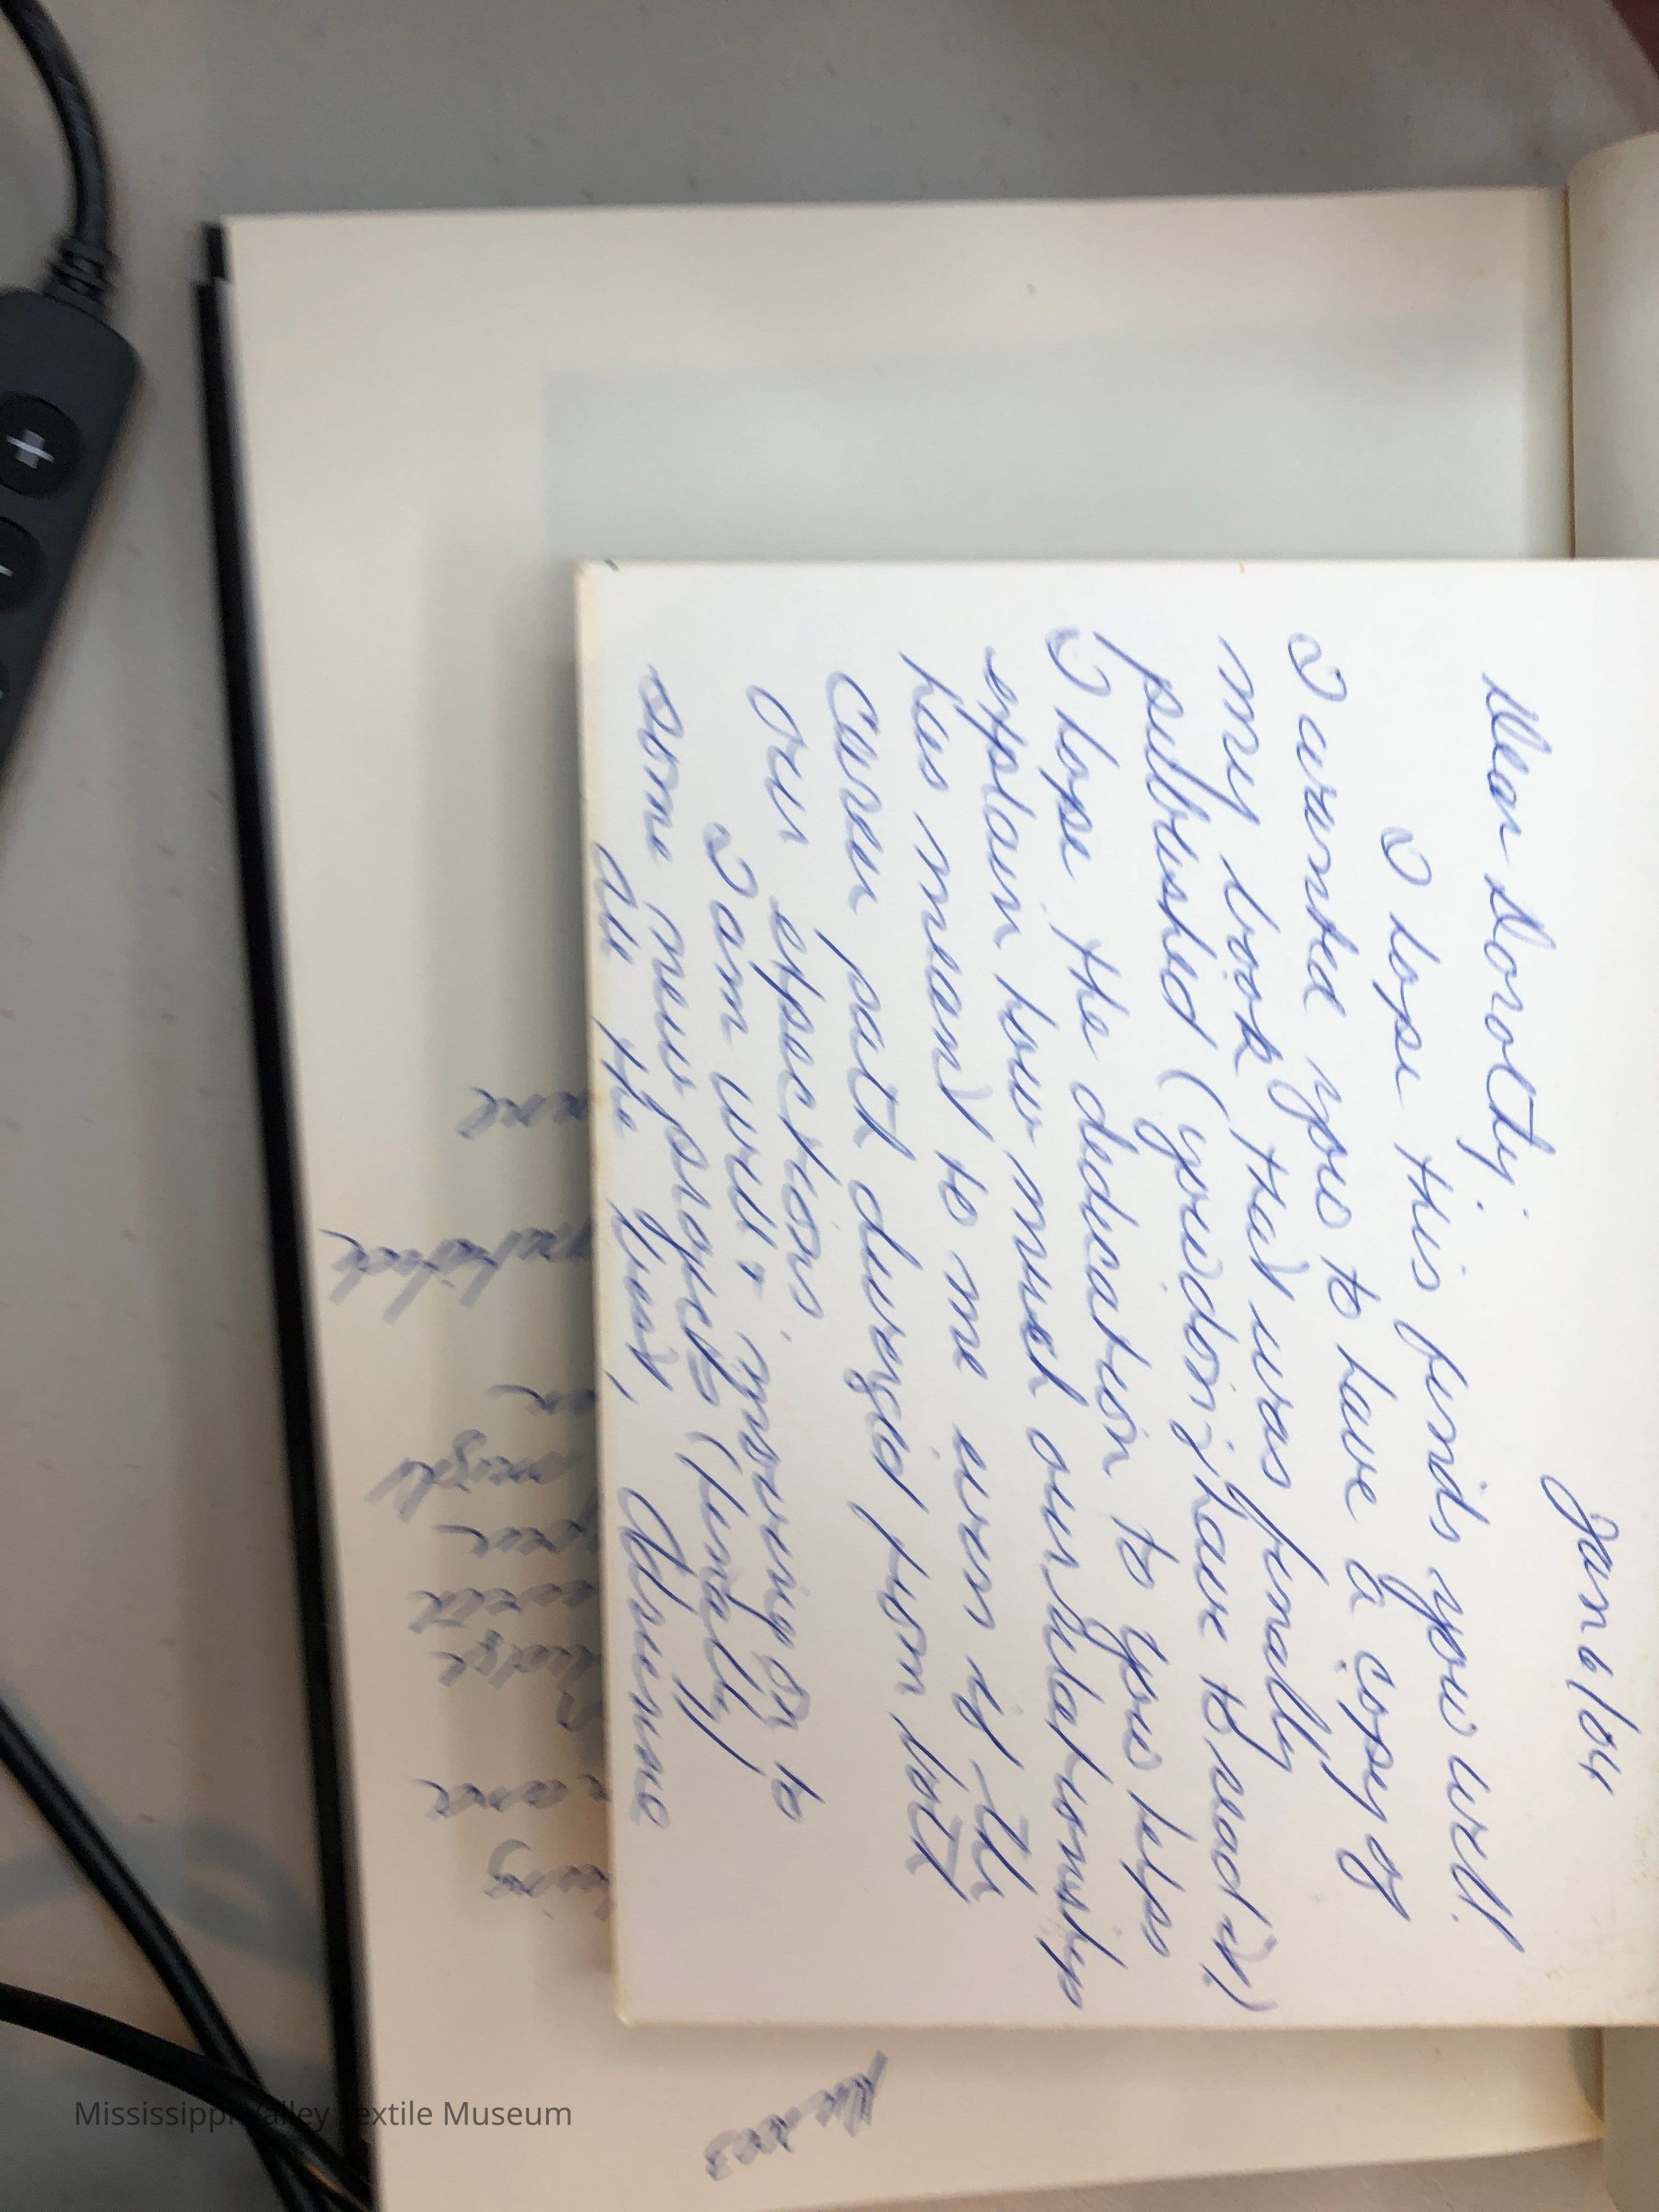 Jan 6/04
Dear Dorothy:
I hope this finds you well.
I wanted you to have a copy of
my book that was finally
published (you don't have to read it!)
I hope the dedication to you helps
explain how much our relationship
has meant to me even if the
career path diverged from both
our expectations.
I am well & moving on to
some new projects (finally)
All the best, Adrienne
Mississippi Valley Textile Museum